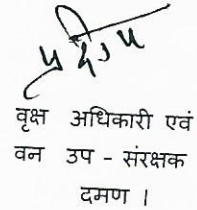 वृक्ष अधिकारी एवं
वन उप - संरक्षक
दमण ।